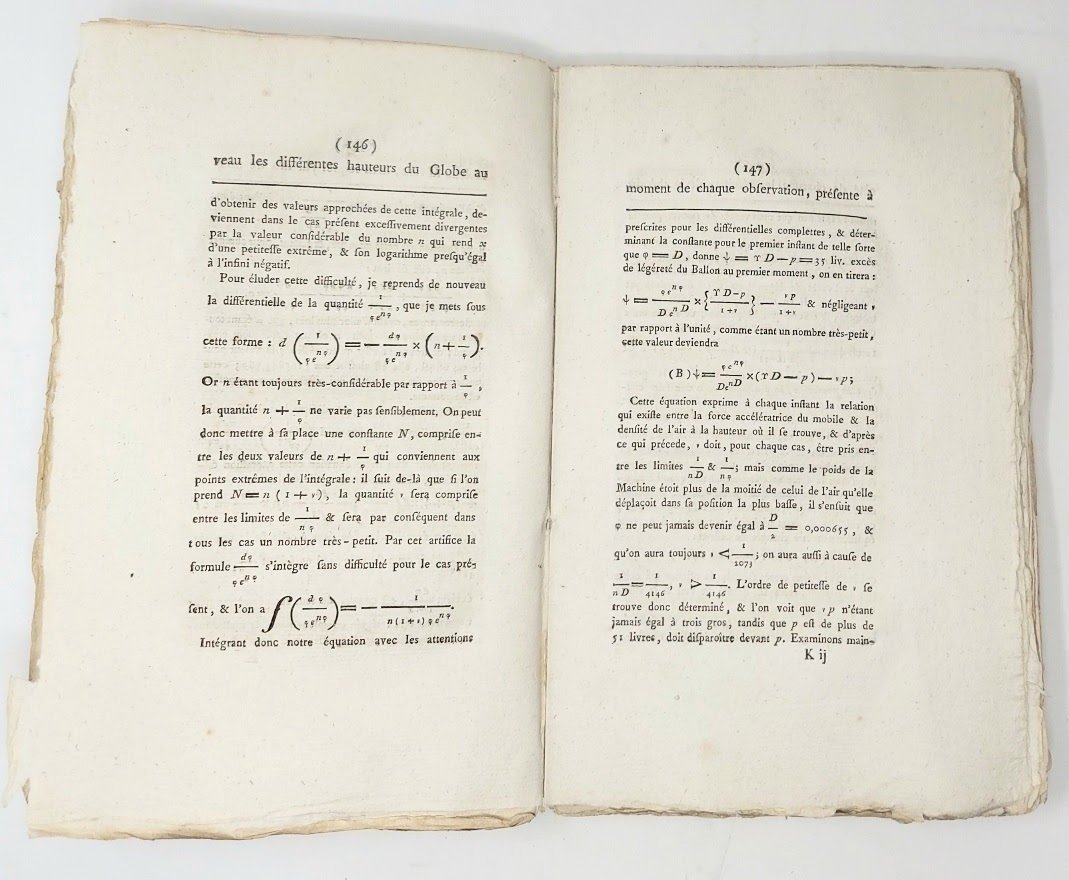 (146)
veau les différentes hauteurs du Globe au
d'obtenir des valeurs approchées de cette intégrale, de-
viennent dans le cas préſent exceſſivement divergentes
par la valeur conſidérable du nombre n qui rend x
d'une petiteſſe extrême, & ſon logarithme preſqu'égal
à l'infini négatif.
Pour éluder cette difficulté, je reprends de nouveau
la différentielle de la quantité 1/(φe^{nφ}), que je mets ſous
cette forme : d (1/(φe^{nφ})) = — dφ/(φe^{nφ}) × (n + 1/φ).
Or n étant toujours très-conſidérable par rapport à 1/φ,
la quantité n + 1/φ ne varie pas ſenſiblement. On peut
donc mettre à ſa place une conſtante N, compriſe en-
tre les deux valeurs de n + 1/φ qui conviennent aux
points extrêmes de l'intégrale : il ſuit de-là que ſi l'on
prend N = n (1 + ν), la quantité ν ſera compriſe
entre les limites de 1/(nφ) & ſera par conſéquent dans
tous les cas un nombre très-petit. Par cet artifice la
formule dφ/(φe^{nφ}) s'intègre ſans difficulté pour le cas pré-
ſent, & l'on a ∫(dφ/(φe^{nφ})) = — 1/(n(1+ν)φe^{nφ}).
Intégrant donc notre équation avec les attentions
(147)
moment de chaque obſervation, préſente à
preſcrites pour les différentielles complettes, & déter-
minant la conſtante pour le premier inſtant de telle ſorte
que φ = D, donne ψ = ϒ D — p = 35 liv. excès
de légéreté du Ballon au premier moment, on en tirera :
ψ = φe^{nφ}/(De^{nD}) × {(ϒD—p)/(1+ν)} — νp/(1+ν) & négligeant ν
par rapport à l'unité, comme étant un nombre très-petit,
cette valeur deviendra
(B) ψ = φe^{nφ}/(De^{nD}) × (ϒD — p) — νp;
Cette équation exprime à chaque inſtant la relation
qui exiſte entre la force accélératrice du mobile & la
denſité de l'air à la hauteur où il ſe trouve, & d'après
ce qui précede, ν doit, pour chaque cas, être pris en-
tre les limites 1/(nD) & 1/(nφ); mais comme le poids de la
Machine étoit plus de la moitié de celui de l'air qu'elle
déplaçoit dans ſa poſition la plus baſſe, il s'enſuit que
φ ne peut jamais devenir égal à D/2 = 0,000655, &
qu'on aura toujours ν < 1/2073; on aura auſſi à cauſe de
1/(nD) = 1/4146, ν > 1/4146. L'ordre de petiteſſe de ν ſe
trouve donc déterminé, & l'on voit que νp n'étant
jamais égal à trois gros, tandis que p eſt de plus de
51 livres, doit diſparoître devant p. Examinons main-
K ij